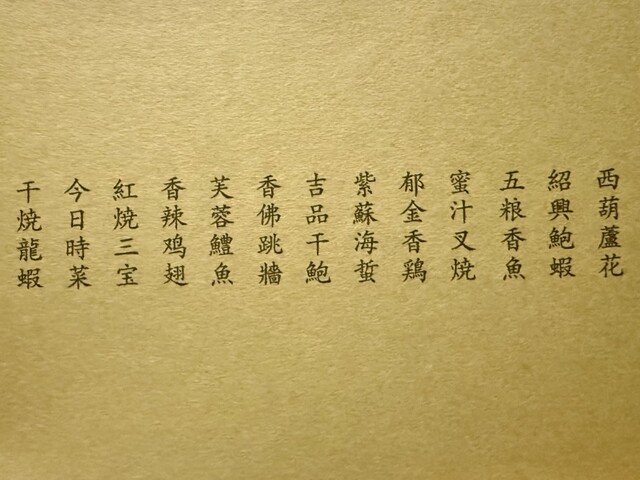 西葫蘆花
紹興鮑蝦
五粮香魚
蜜汁叉焼
郁金香鶏
紫蘇海蜇
吉品干鮑
香佛跳牆
芙蓉鱧魚
香辣鸡翅
紅焼三宝
今日時菜
干焼龍蝦